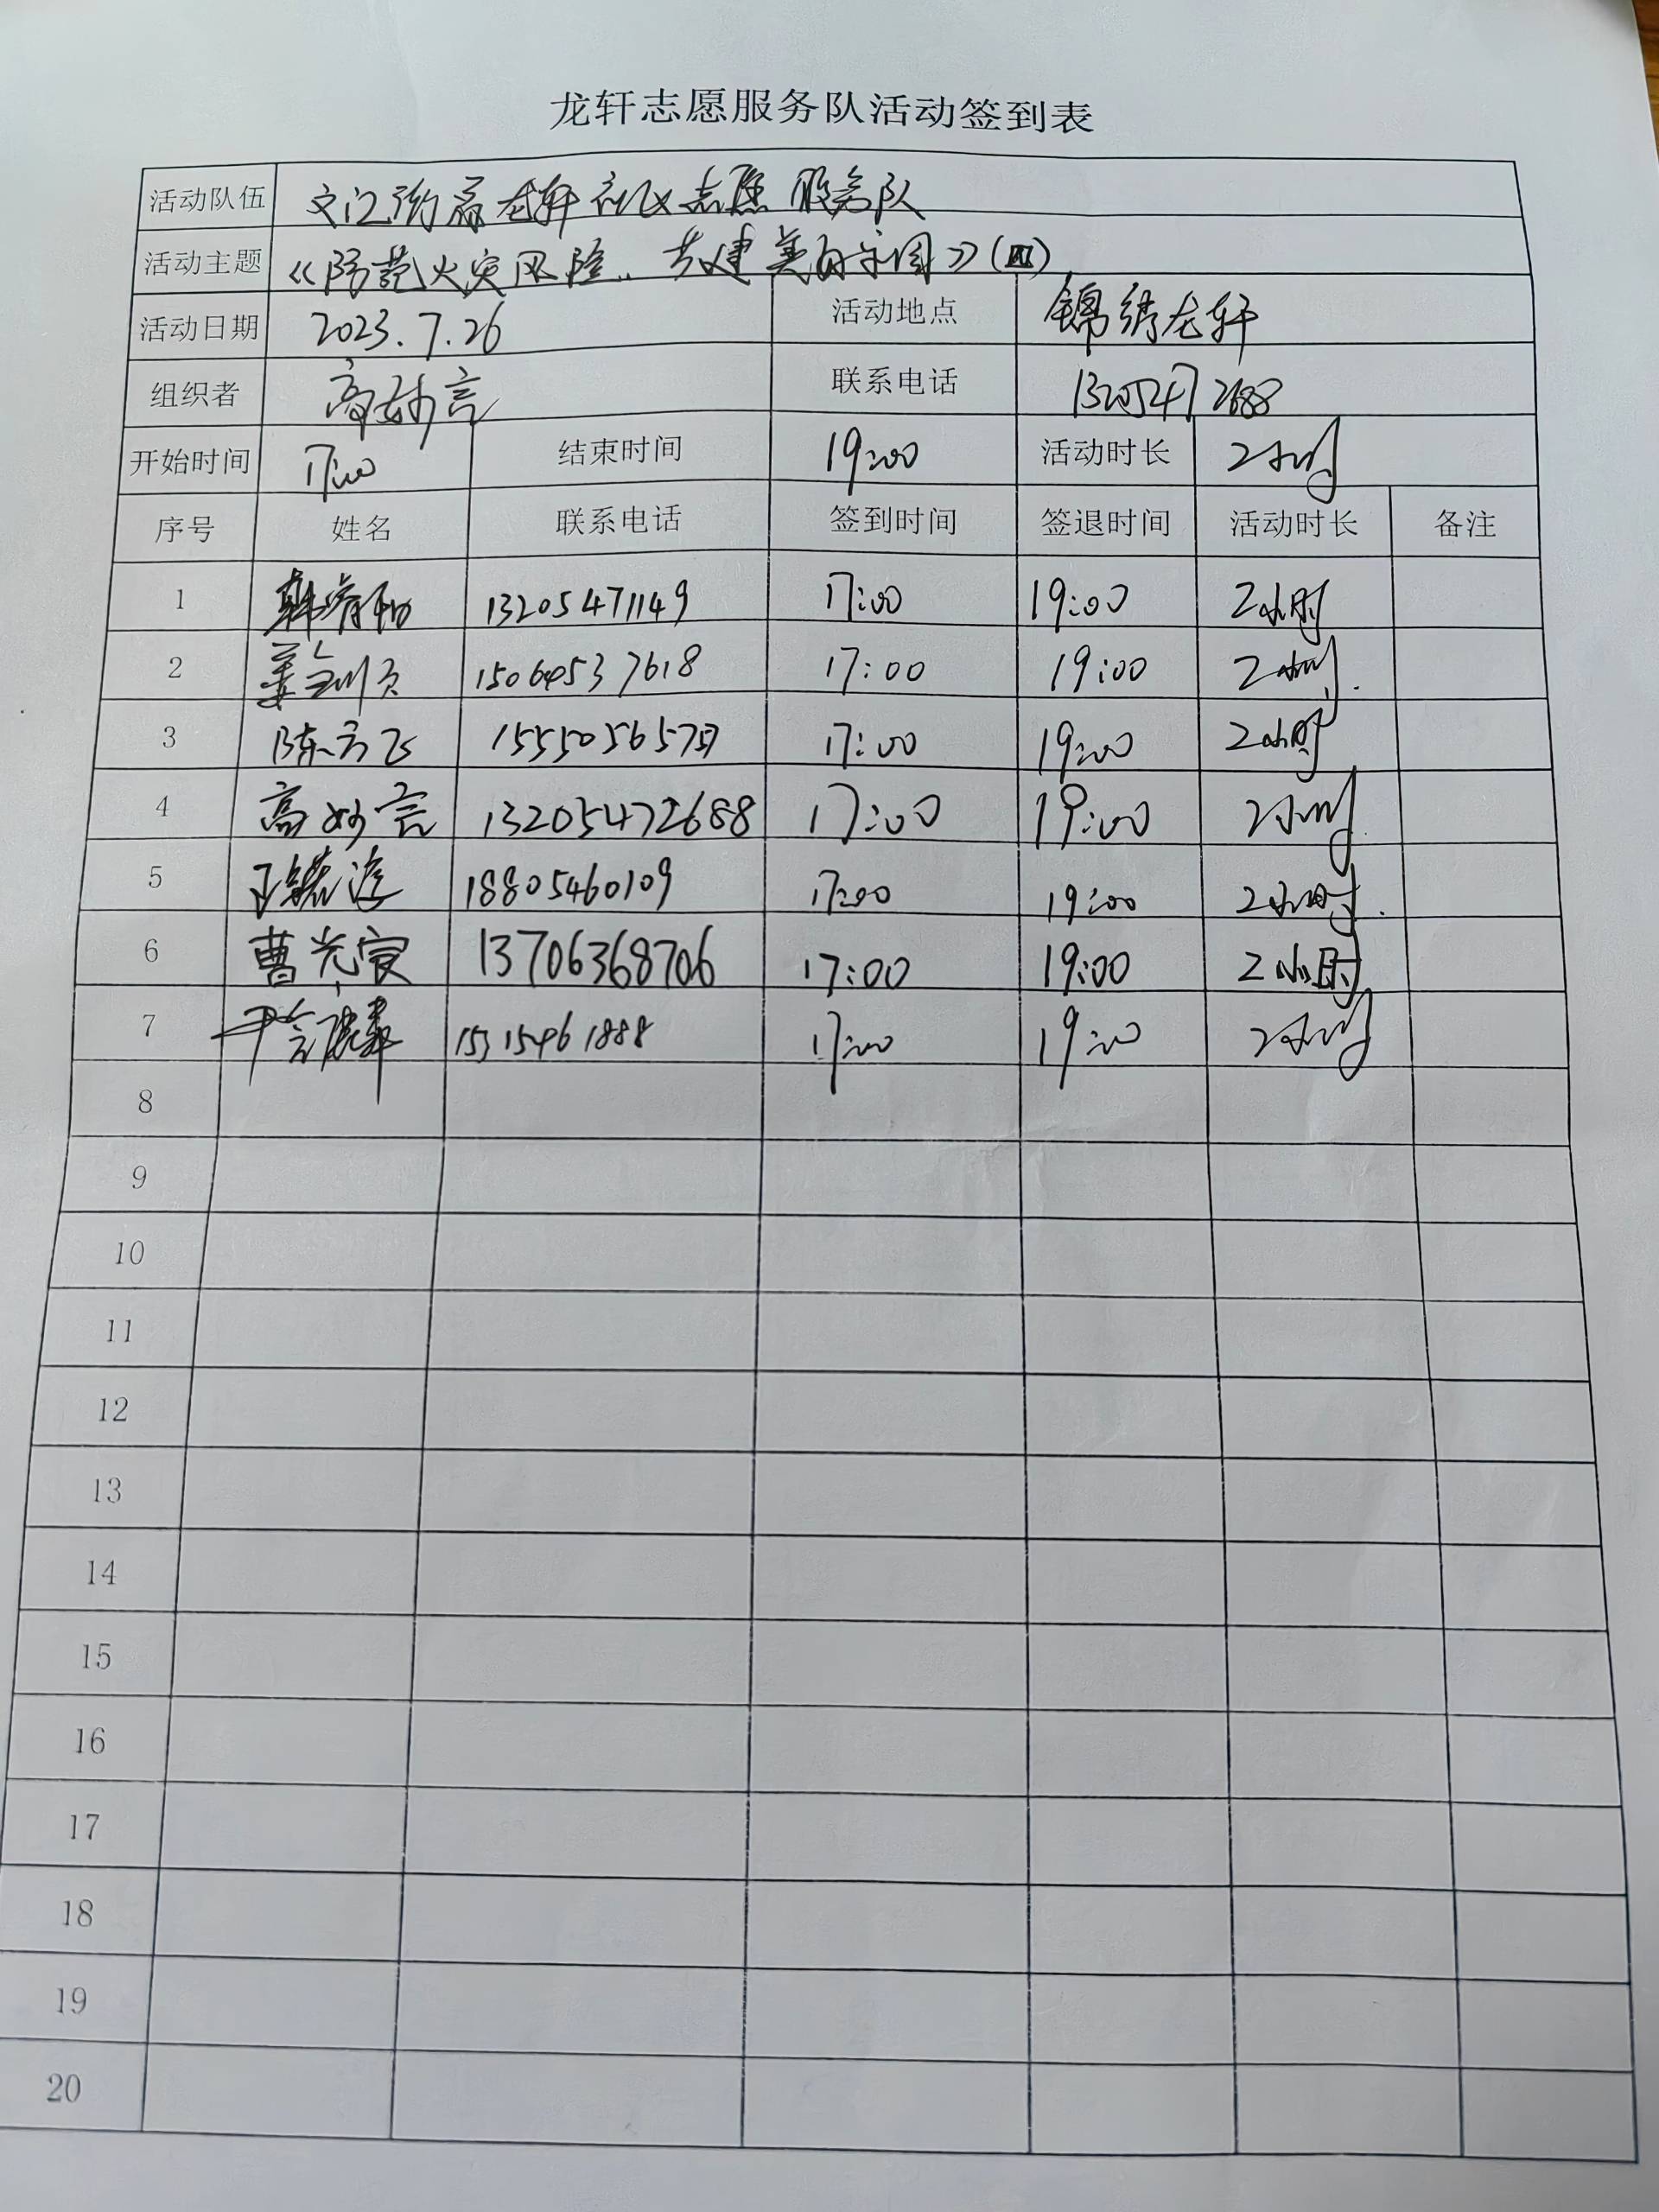 龙轩志愿服务队活动签到表
活动队伍 文汇街道龙轩社区志愿服务队
活动主题 《防范火灾风险，共建美好家园》
活动日期 2023.7.26 活动地点 锦绣龙轩
组织者 高妙言 联系电话 13205472688
开始时间 17:00 结束时间 19:00 活动时长 2小时
序号 姓名 联系电话 签到时间 签退时间 活动时长 备注
1 13205471149 17:00 19:00 2小时
2 15064537618 17:00 19:00 2小时.
3 陈方飞 17:00 19:00 2小时
4 高妙言 13205472688 17:00 19:00 2小时
5 18805460109 17:00 19:00 2小时.
6 曹光宸 13706368706 17:00 19:00 2小时
7 15315461888 17:00 19:00 2小时
8
9
10
11
12
13
14
15
16
17
18
19
20